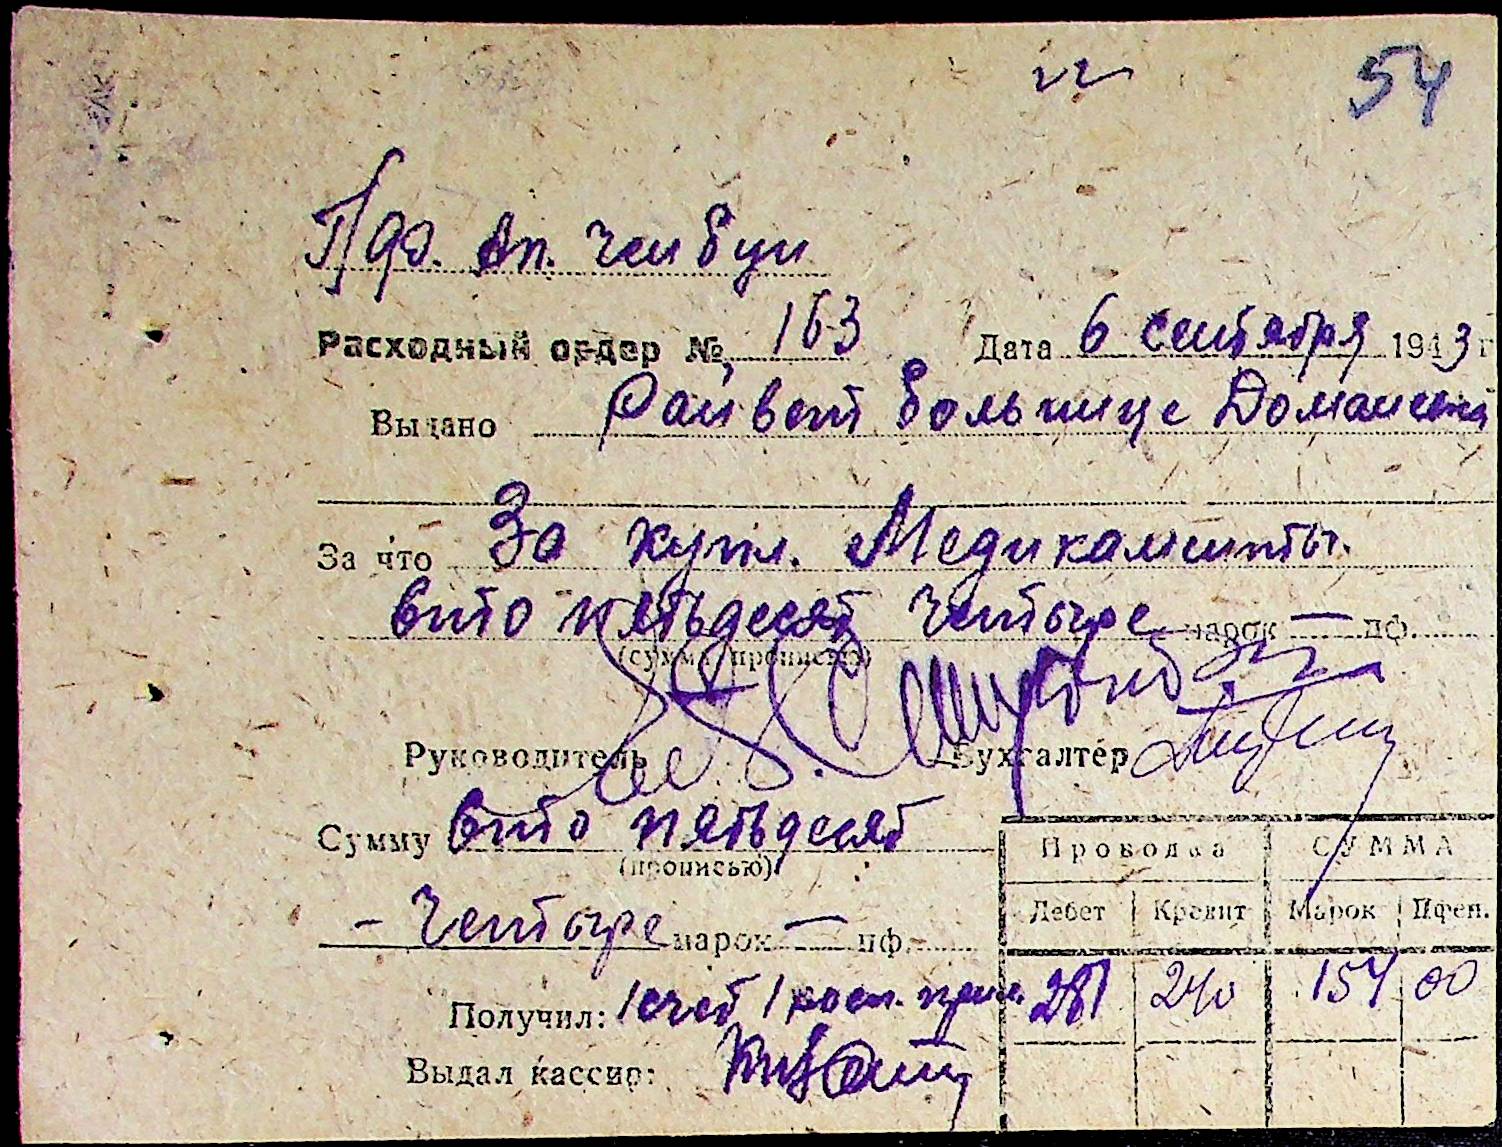 54
Расходный ордер № 163 Дата 6 сентября 1943 г
Выдано Райвет больнице
За что За купл. Медикаменты.
Сто пятьдесят четыре марок — пф.
(сумма прописью)
Руководитель Бухгалтер
Сумму Сто пятьдесят
(прописью)
Проводка СУММА
Дебет Кредит Марок Пфен.
- Четыре марок — пф.
281 240 154 00
Получил: 1 счет 1
Выдал кассир: